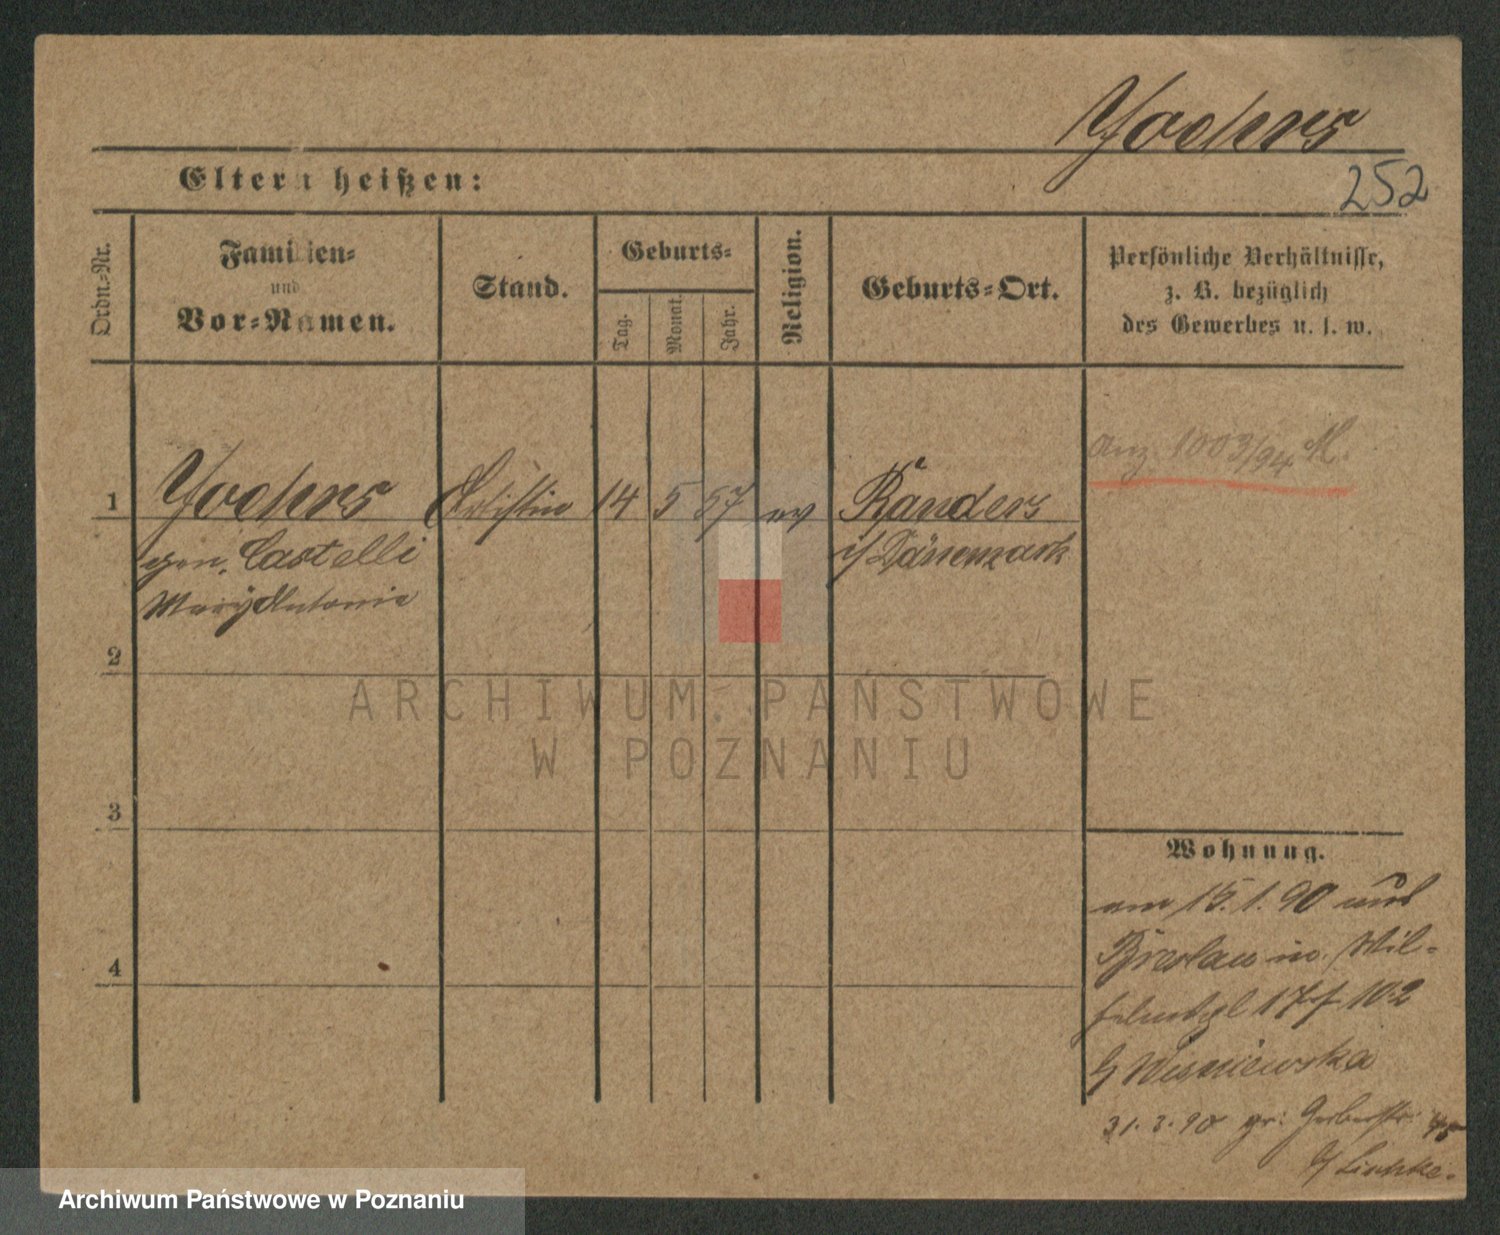 Yoders
252
Eltern heißen:
Ordn.-Nr.
Familien-
und
Vor-Namen.
Stand.
Geburts-
Tag.
Monat.
Jahr.
Religion.
Geburts-Ort.
Persönliche Verhältnisse,
z. B. bezüglich
des Gewerbes u. s. w.
Anz 1003/94
1 Artistin 14 5 57 ev Randers
gen. Castelli i/ Dänemark
Mary Antonie
2
3
4
Wohnung.
am 15.1.90 aus
Breslau in. Wil-
17 102
31.3.90 gr. Gerberstr. 45
ARCHIWUM PAŃSTWOWE
W POZNANIU
Archiwum Państwowe w Poznaniu